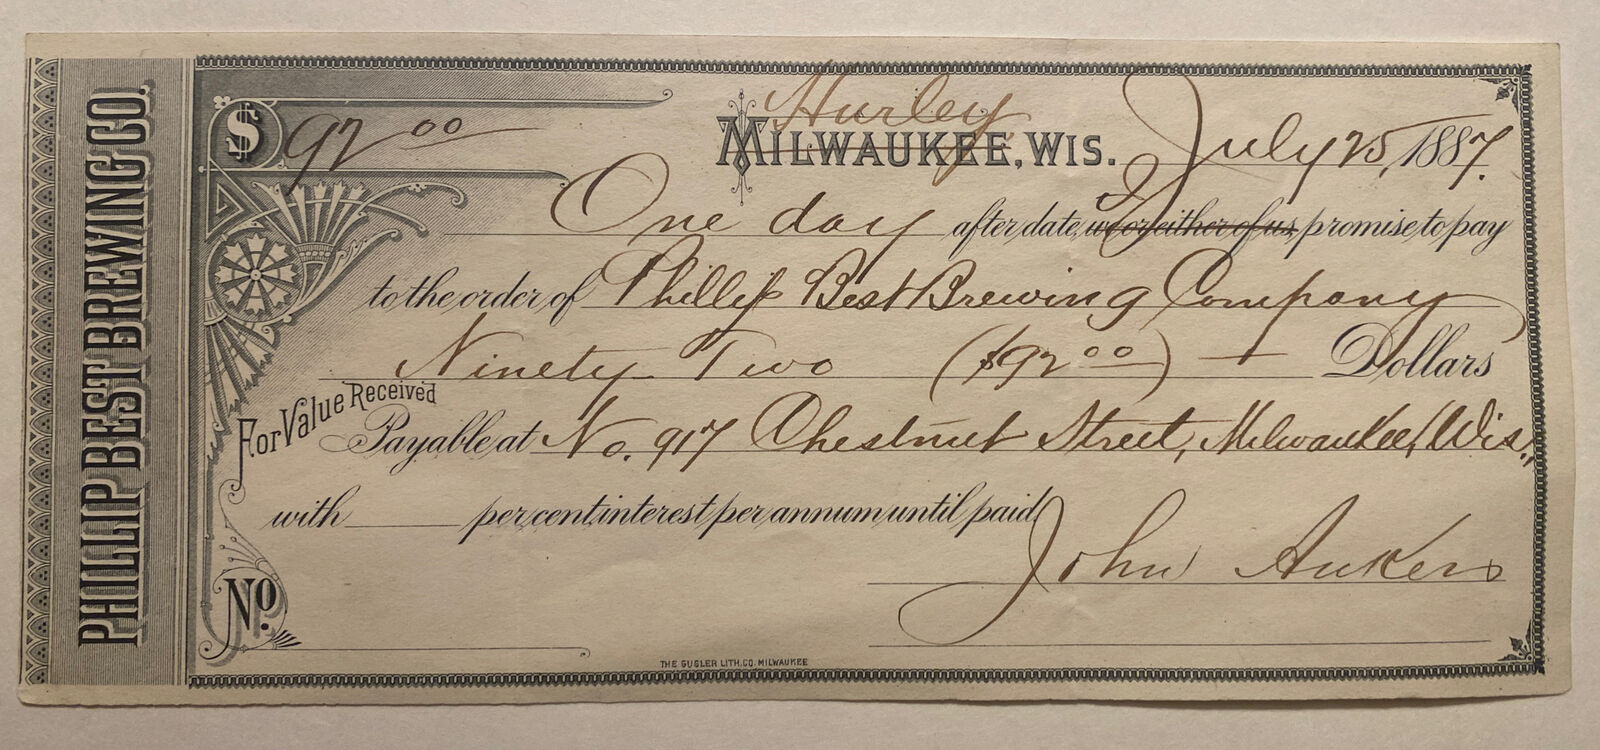 PHILLIP BEST BREWING CO.
$ 92 00
Hurley
MILWAUKEE, WIS. July 25, 1887.
One day after date, I we or either of us, promise to pay
to the order of Phillip Best Brewing Company
Ninety Two ($92 00) Dollars
For Value Received
Payable at No. 917 Chestnut Street, Milwaukee, Wis.,
with per cent interest per annum until paid
John Aukers
No.
THE GUGLER LITH. CO. MILWAUKEE